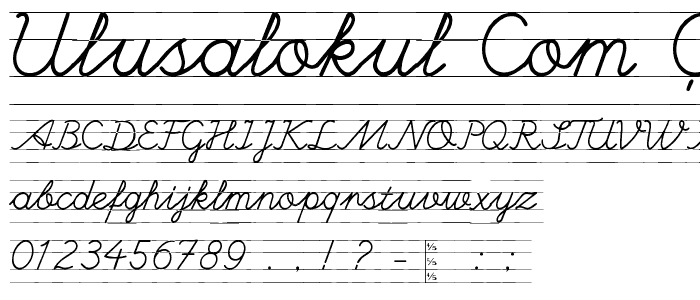 Ulusalokul Com Ç
ABCDEFGHIJKLMNOPQRSTUVWX
abcdefghijklmnopqrstuvwxyz
0123456789 . , ! ? - ⅓ ⅓ ⅓ : ;